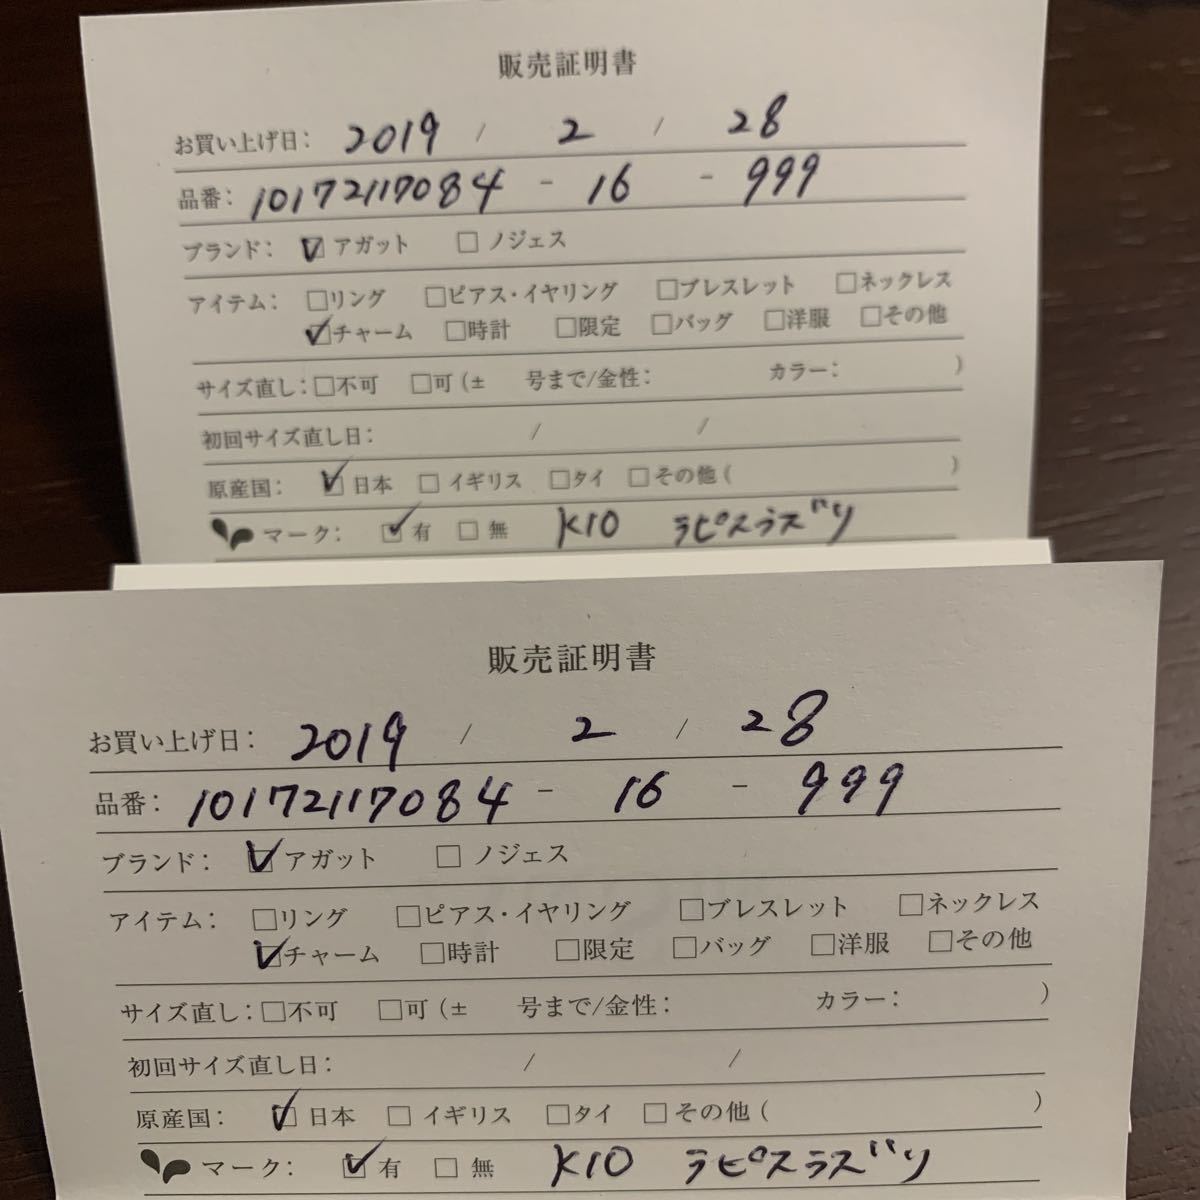 販売証明書
お買い上げ日: 2019 / 2 / 28
品番: 10172117084 - 16 - 999
ブランド: ☑アガット □ノジェス
アイテム: □リング □ピアス・イヤリング □ブレスレット □ネックレス
☑チャーム □時計 □限定 □バッグ □洋服 □その他
サイズ直し: □不可 □可(± 号まで/金性: カラー: )
初回サイズ直し日: / /
原産国: ☑日本 □イギリス □タイ □その他( )
マーク: ☑有 □無 K10 ラピスラズリ
販売証明書
お買い上げ日: 2019 / 2 / 28
品番: 10172117084 - 16 - 999
ブランド: ☑アガット □ノジェス
アイテム: □リング □ピアス・イヤリング □ブレスレット □ネックレス
☑チャーム □時計 □限定 □バッグ □洋服 □その他
サイズ直し: □不可 □可(± 号まで/金性: カラー: )
初回サイズ直し日: / /
原産国: ☑日本 □イギリス □タイ □その他( )
マーク: ☑有 □無 K10 ラピスラズリ